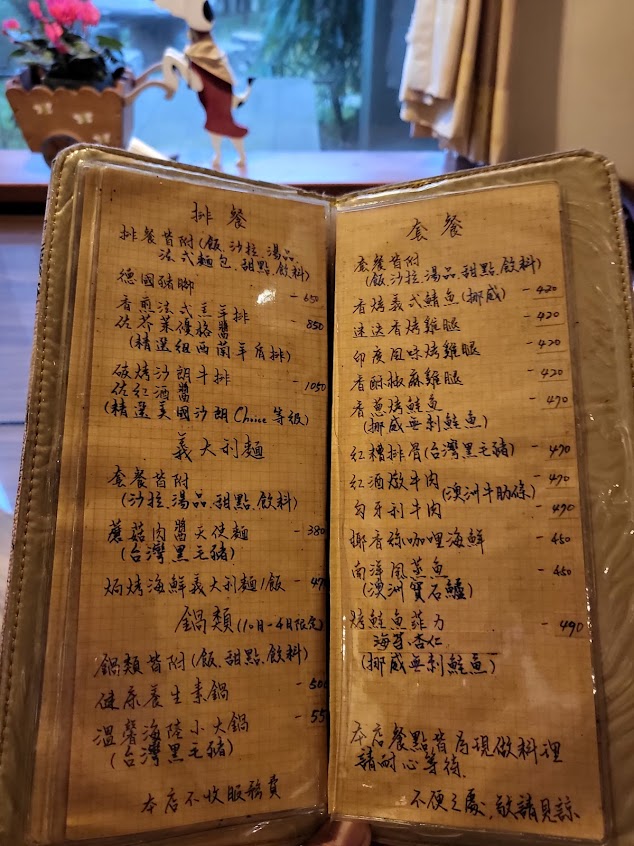 排餐
排餐皆附(飯,沙拉,湯品,
法式麵包,甜點,飲料)
德國豬腳 - 650
香煎法式羔羊排 - 850
佐芥茉優格醬
(精選紐西蘭羊肩排)
碳烤沙朗牛排 - 1050
佐紅酒醬
(精選美國沙朗Choice等級)
義大利麵
套餐皆附
(沙拉,湯品,甜點,飲料)
蘑菇肉醬天使麵 - 380
(台灣黑毛豬)
焗烤海鮮義大利麵/飯 - 47
鍋類(10月-4月限定)
鍋類皆附(飯,甜點,飲料)
健康養生素鍋 - 500
溫馨海陸小火鍋 - 55
(台灣黑毛豬)
本店不收服務費
套餐
套餐皆附
(飯,沙拉,湯品,甜點,飲料)
香烤義式鯖魚(挪威) - 420
迷迭香烤雞腿 - 420
印度風味烤雞腿 - 420
香酥椒麻雞腿 - 420
香蔥烤鮭魚 - 470
(挪威無刺鮭魚)
紅糟排骨(台灣黑毛豬) - 470
紅酒燉牛肉 - 470
(澳洲牛肋條)
匈牙利牛肉 - 490
椰香綠咖哩海鮮 - 450
南洋風蒸魚 - 450
(澳洲寶石鱸)
烤鮭魚菲力 - 490
海芽杏仁
(挪威無刺鮭魚)
本店餐點皆為現做料理
請耐心等待.
不便之處,敬請見諒.